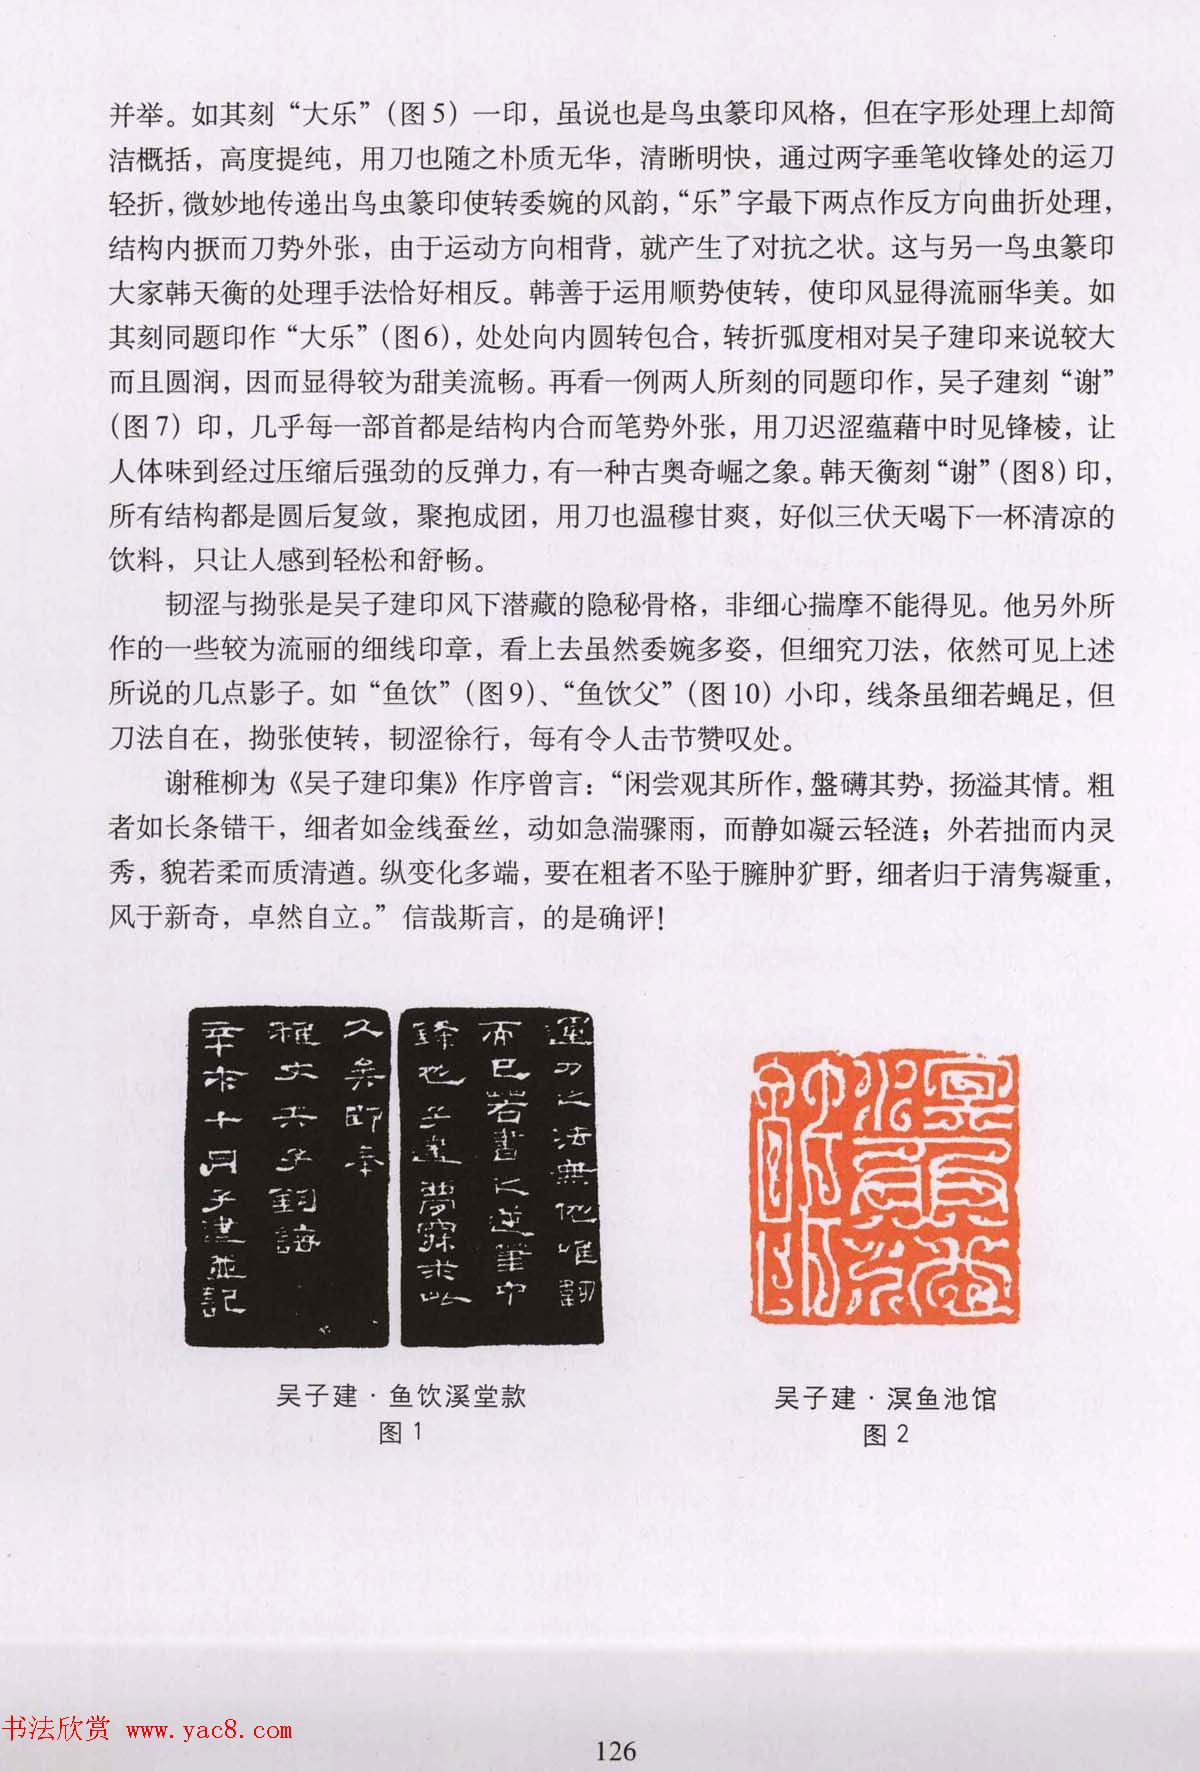 并举。如其刻“大乐”（图5）一印，虽说也是鸟虫篆印风格，但在字形处理上却简
洁概括，高度提纯，用刀也随之朴质无华，清晰明快，通过两字垂笔收锋处的运刀
轻折，微妙地传递出鸟虫篆印使转委婉的风韵，“乐”字最下两点作反方向曲折处理，
结构内抠而刀势外张，由于运动方向相背，就产生了对抗之状。这与另一鸟虫篆印
大家韩天衡的处理手法恰好相反。韩善于运用顺势使转，使印风显得流丽华美。如
其刻同题印作“大乐”（图6），处处向内圆转包合，转折弧度相对吴子建印来说较大
而且圆润，因而显得较为甜美流畅。再看一例两人所刻的同题印作，吴子建刻“谢”
（图7）印，几乎每一部首都是结构内合而笔势外张，用刀迟涩蕴藉中时见锋棱，让
人体味到经过压缩后强劲的反弹力，有一种古奥奇崛之象。韩天衡刻“谢”（图8）印，
所有结构都是圆后复敛，聚抱成团，用刀也温穆甘爽，好似三伏天喝下一杯清凉的
饮料，只让人感到轻松和舒畅。
韧涩与拗张是吴子建印风下潜藏的隐秘骨格，非细心揣摩不能得见。他另外所
作的一些较为流丽的细线印章，看上去虽然委婉多姿，但细究刀法，依然可见上述
所说的几点影子。如“鱼饮”（图9）、“鱼饮父”（图10）小印，线条虽细若蝇足，但
刀法自在，拗张使转，韧涩徐行，每有令人击节赞叹处。
谢稚柳为《吴子建印集》作序曾言：“闲尝观其所作，盤礴其势，扬溢其情。粗
者如长条错干，细者如金线蚕丝，动如急湍骤雨，而静如凝云轻涟；外若拙而内灵
秀，貌若柔而质清遒。纵变化多端，要在粗者不坠于臃肿犷野，细者归于清隽凝重，
风于新奇，卓然自立。”信哉斯言，的是确评！
運刀之法無他唯韌
而已若書之逆筆中
鋒也子建夢寐求此
久矣即奉
稚丈夫子鈞誨
辛未十月子建並記
吴子建·鱼饮溪堂款
图 1
吴子建·溟鱼池馆
图 2
书法欣赏 www.yac8.com
126